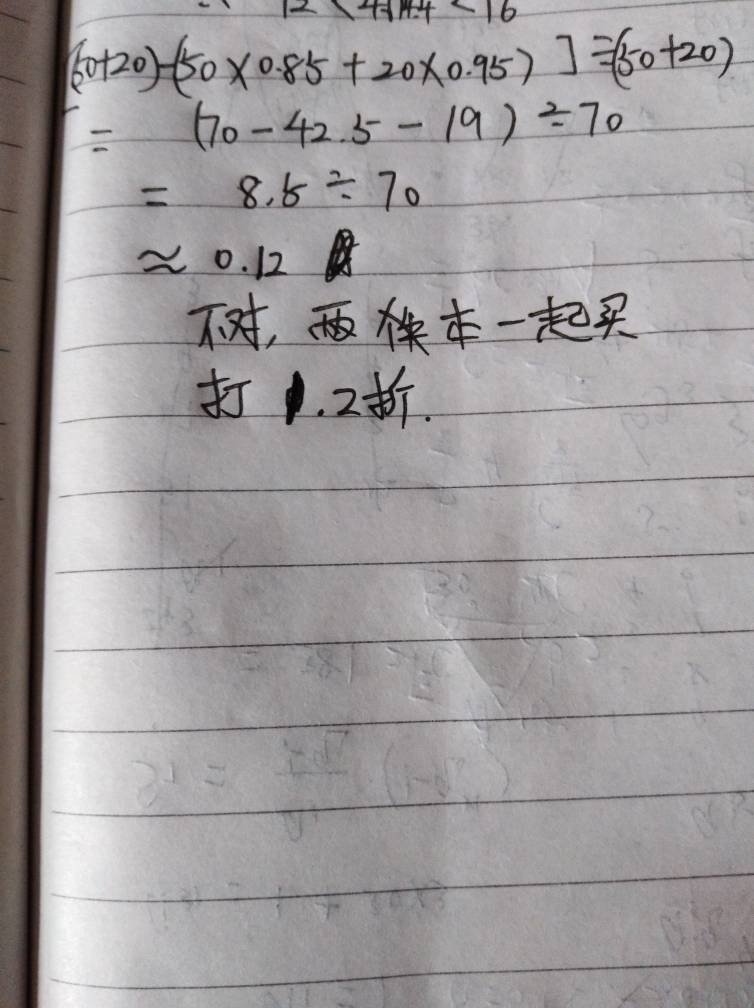 [(50+20)-(50×0.85+20×0.95)]÷(50+20)
= (70-42.5-19)÷70
= 8.5÷70
≈ 0.12
不对,两模本一起买
打1.2折.